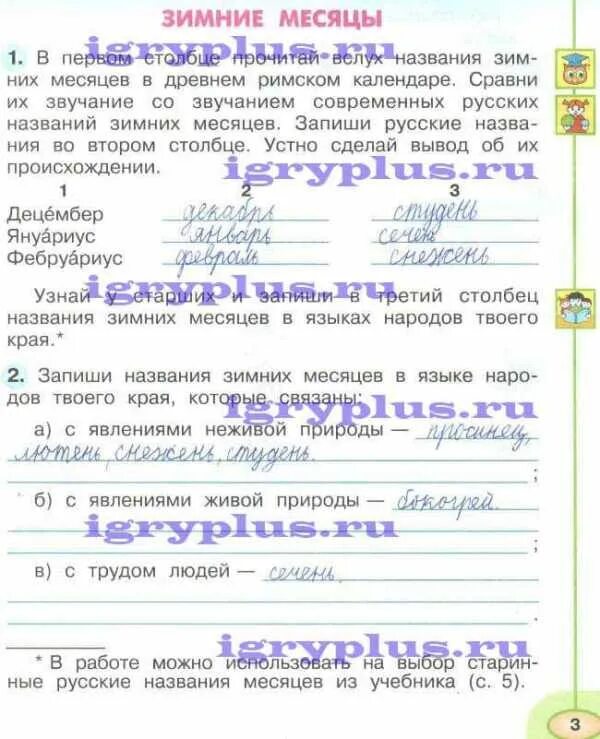 ЗИМНИЕ МЕСЯЦЫ
igryplus.ru
1. В первом столбце прочитай вслух названия зим-
них месяцев в древнем римском календаре. Сравни
их звучание со звучанием современных русских
названий зимних месяцев. Запиши русские назва-
ния во втором столбце. Устно сделай вывод об их
происхождении.
igryplus.ru
1 2 3
Деце́мбер декабрь студень
Януа́риус январь сечень
Фебруа́риус февраль снежень
igryplus.ru
Узнай у старших и запиши в третий столбец
названия зимних месяцев в языках народов твоего
края.*
2. Запиши названия зимних месяцев в языке наро-
дов твоего края, которые связаны:
igryplus.ru
а) с явлениями неживой природы — просинец,
лютень, снежень, студень.
;
б) с явлениями живой природы — бокогрей.
igryplus.ru
;
в) с трудом людей — сечень.
.
igryplus.ru
* В работе можно использовать на выбор старин-
ные русские названия месяцев из учебника (с. 5).
igryplus.ru
3